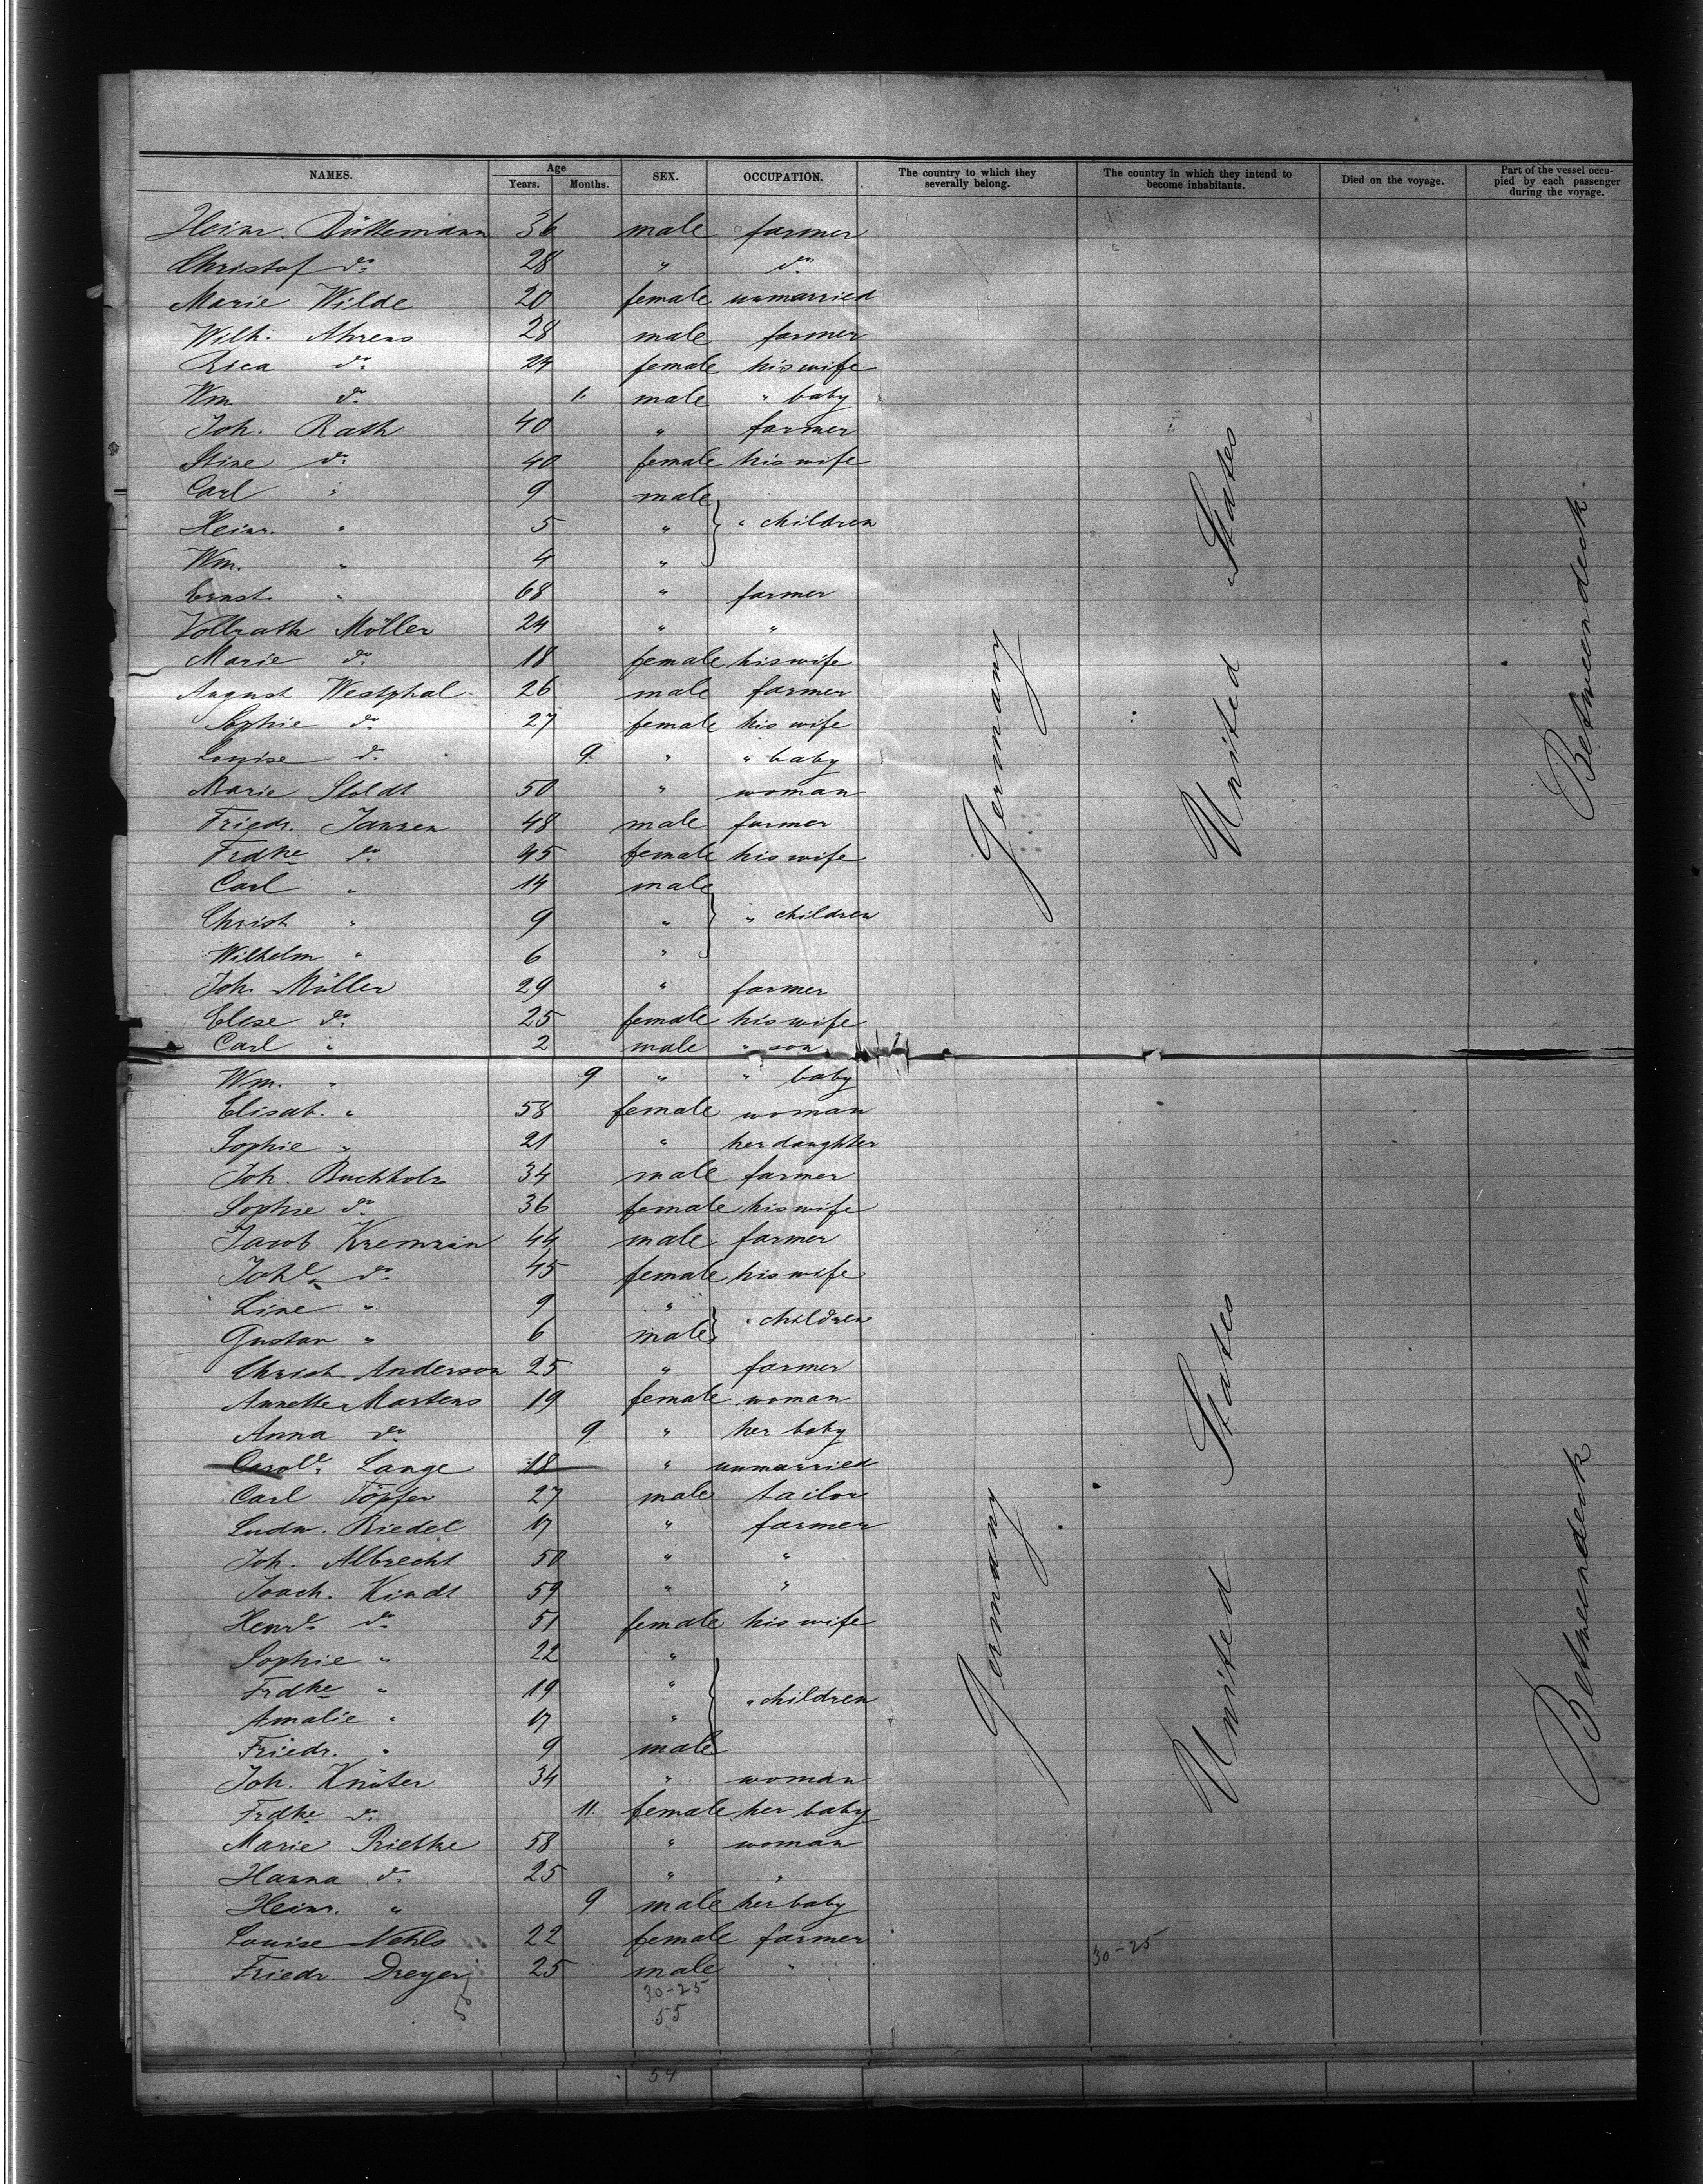 NAMES. Age Years. Months. SEX. OCCUPATION. The country to which they severally belong. The country in which they intend to become inhabitants. Died on the voyage. Part of the vessel occupied by each passenger during the voyage.
Heinr. 36 male farmer
Christof do 28 " do
Marie Wilde 20 female unmarried
Wilh. Ahrens 28 male farmer
Rica do 24 female his wife
Wm. do male " baby
Joh. Rath 40 " farmer
Stine do 40 female his wife
Carl " 9 male
Heinr. " 5 " " children
Wm. " 4 "
Ernst " 68 " farmer
Vollrath Möller 24 " "
Marie do 18 female his wife
August Westphal 26 male farmer
Sophie do 27 female his wife
Louise do 9 " " baby
Marie Stoldt 50 " woman
Friedr. Janzen 48 male farmer
Frdke do 45 female his wife
Carl " 14 male
Christ " 9 " " children
Wilhelm " 6 "
Joh. Müller 29 " farmer
Elise do 25 female his wife
Carl " 2 male " son
Wm. " 9 " " baby
Elisab. " 58 female woman
Sophie " 21 " her daughter
Joh. Buchholz 34 male farmer
Sophie do 36 female his wife
Jacob Kremzin 44 male farmer
Johe do 45 female his wife
Line " 9 "
Gustav " 6 male " children
Christ. Anderson 25 " farmer
Annette Martens 19 female woman
Anna do 9 " her baby
Carole Lange 18 " unmarried
Carl Töpfer 27 male tailor
Ludw. Riedel 17 " farmer
Joh. Albrecht 50 " "
Joach. Kindt 59 " "
Henre do 51 female his wife
Sophie " 22 "
Frdke " 19 " " children
Amalie " 17 "
Friedr. " 9 male
Joh. Knüter 34 " woman
Frdke do 11 female her baby
Marie Prietke 58 " woman
Hanna do 25 " "
Heinr. " 9 male her baby
Louise Nehls 22 female farmer
Friedr. Dreyer 25 male "
Germany
United States
Betweendeck
Germany
United States
Betweendeck
30-25
30-25
55
54